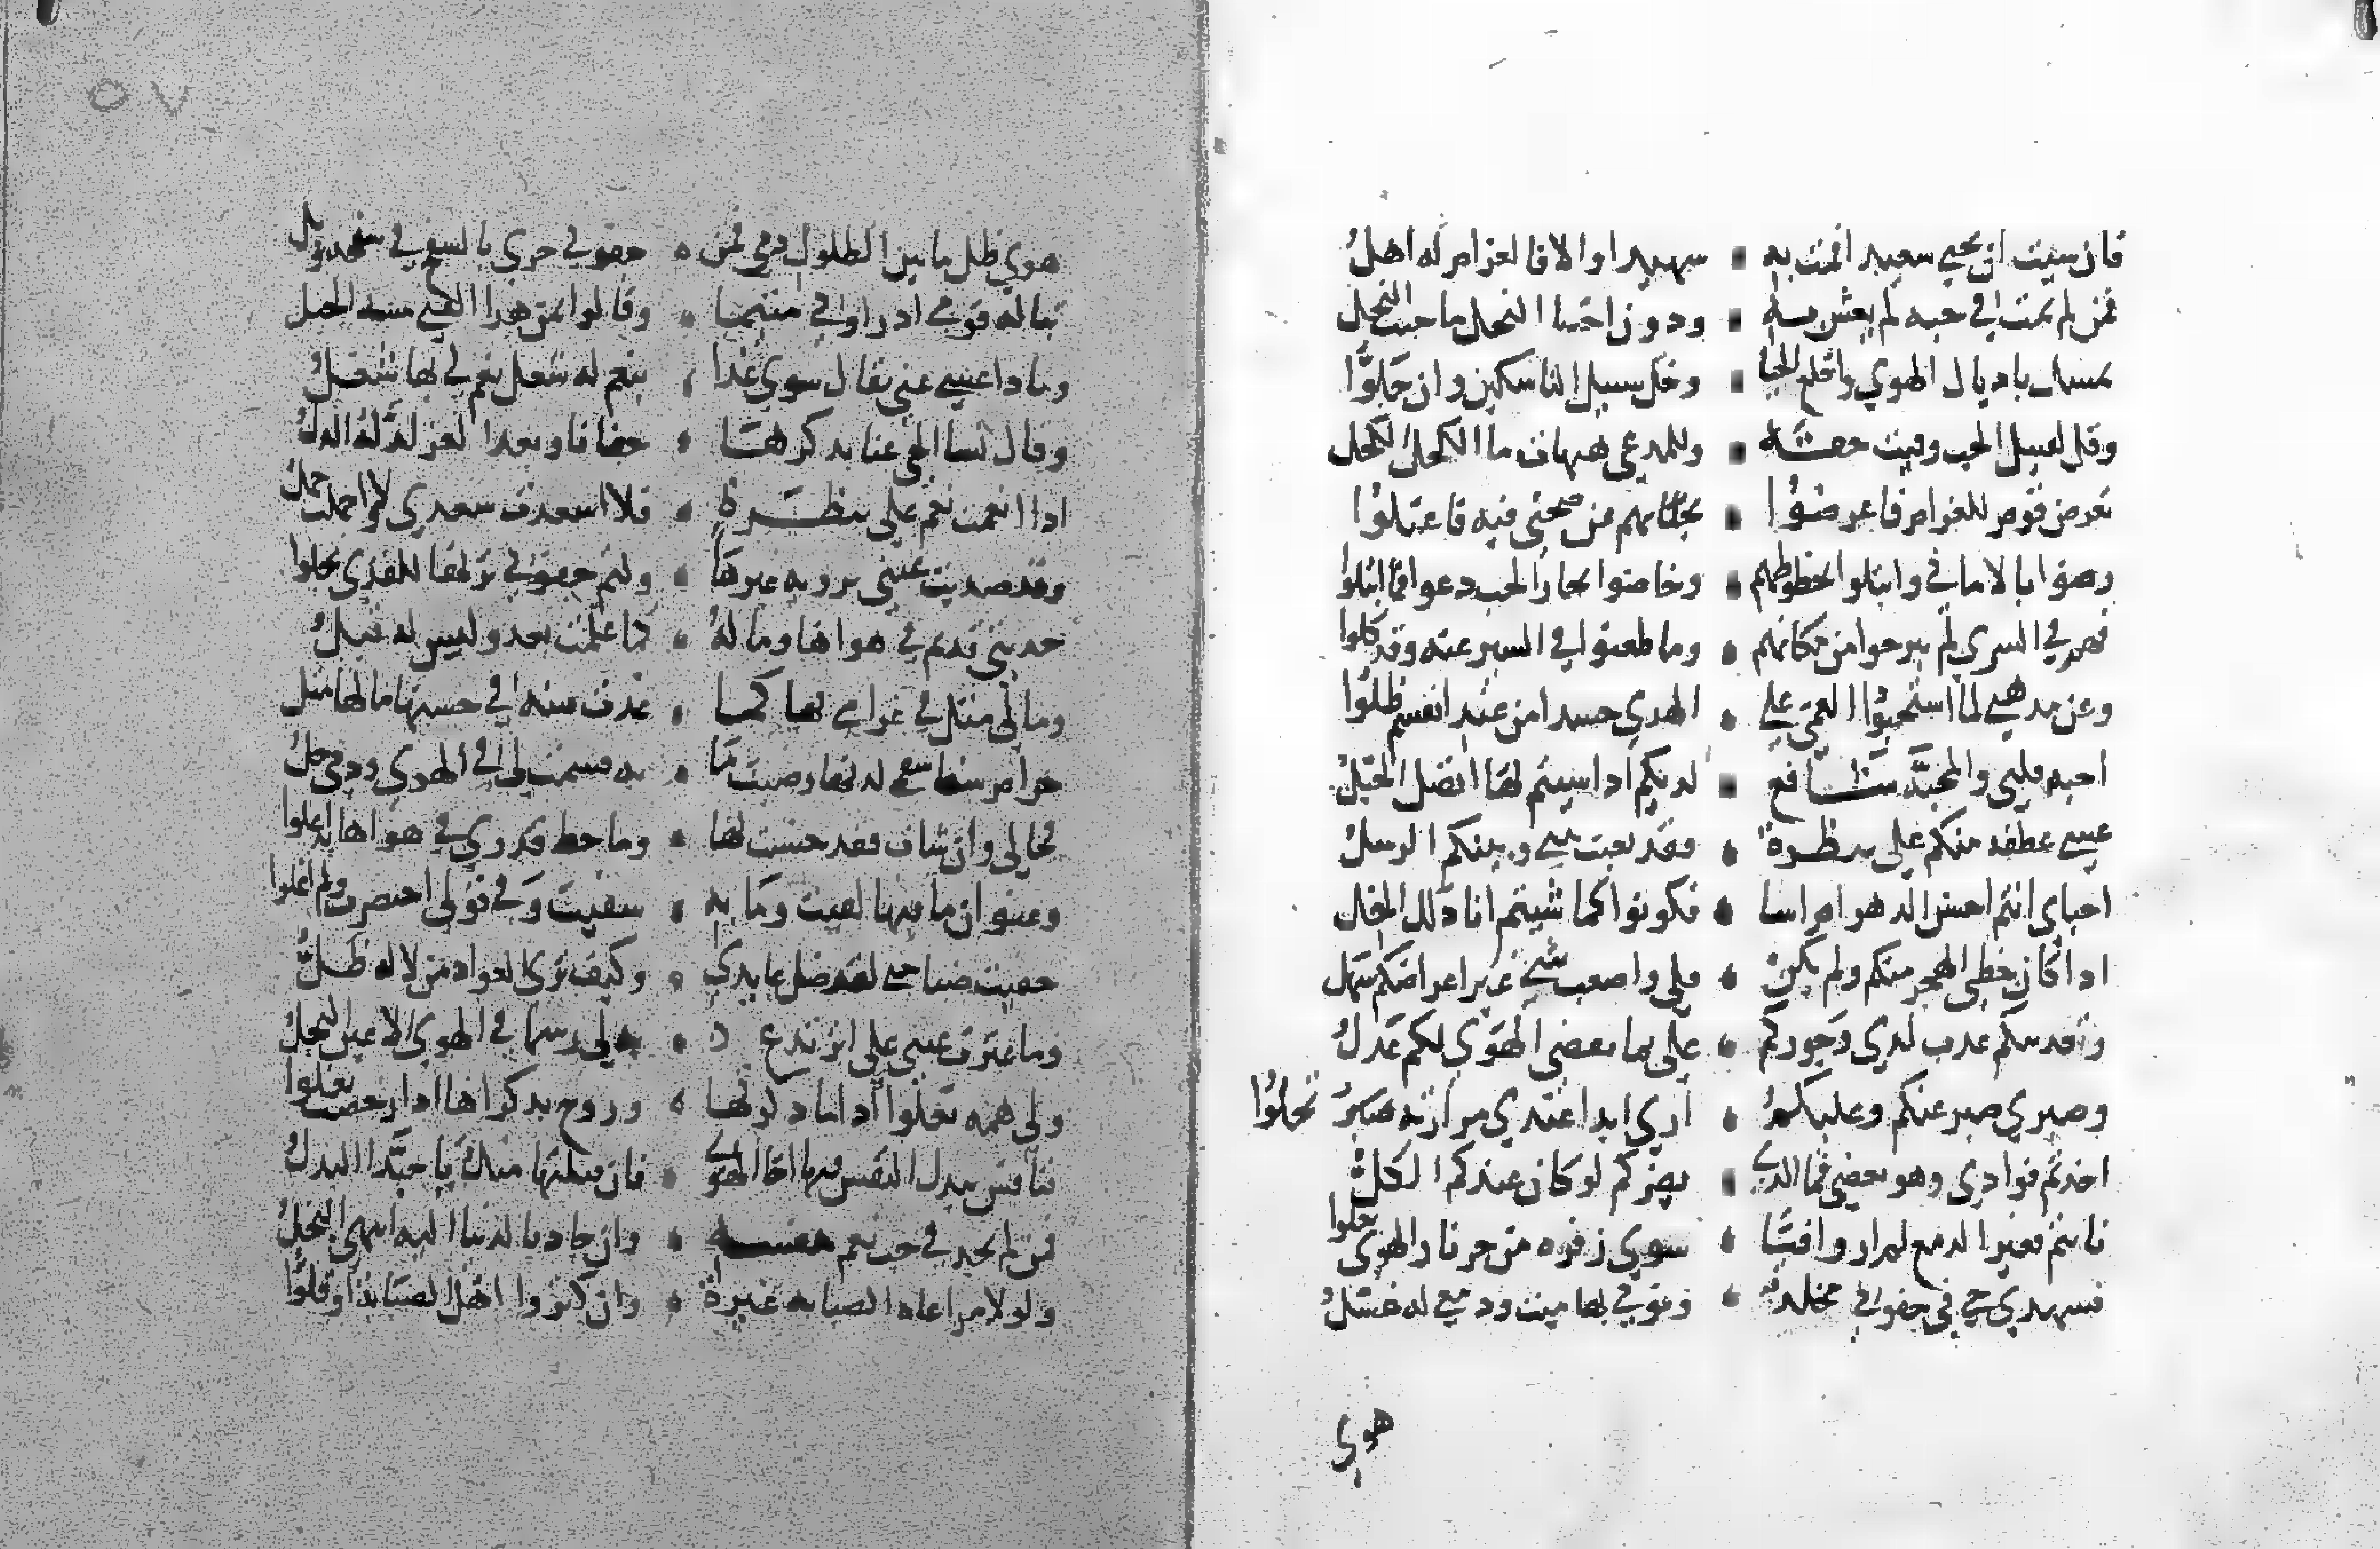 فان سيت ان تحيي سعيدا فمت به • سهيدا والا فالغرام له اهلُ
فمن لم يمت في حبه لم يعش به • ودون اجتنا النحل ما جنت النحل
تمسك باديال الهوي واخلع الحيا • وخل سبيل الناسكين وان جلوّا
وقل لقتيل الحب وفيت حقه • وللمدعي هيهات ما الكحل الكحل
تعرض قوم للغرام فاعرضوا • بجانبهم عن صحتي فيه فاعتلوا
رضوا بالاماني وابتلوا بحظوظهم • وخاضوا بحار الحب دعوا فما ابتلوا
فهم في السري لم يبرحوا من مكانهم • وما ظعنوا في السير عنه وقد كلوا
وعن مدهبي لما استحبوا العمي علي • الهدي حسدا من عند انفسهم ظلوا
احبه قلبي والمحبّة شافع • لديكم ادا سيتم بها اتصل الحبل
عسي عطفه منكم علي بنظرة • فقد تعبت بيني وبينكم الرسل
احباي انتم احسن الدهر ام اسا • فكونوا كما شيتم انا دلك الخل
ادا كان حظي الهجر منكم ولم يكن • بعاد فداك الهجر عندي هو الوصل
وتعديبكم عدب لدي وجوركم • علي بما يقضي الهوي لكم عدل
وصبري صبر عنكم وعليكم • اري ابدا عندي مرارته تحلوا
اخدتم فوادي وهو بعضي فما الدي • يضركم لو كان عندكم الكل
نايتم فغير الدمع لم ار وافيا • سوي زفره من حر نار الهوي تعلوا
فسهدي حي في جفوني مخلد • ونومي بها ميت ودمعي له غسل
هوي
٥٧
هوي طل ما بين الطلول دمي فمن • جفوني جري بالسفح في سفحه وبل
تباله قومي اد راوني متيما • وقالوا بمن هدا الفتي مسه الخبل
وما دا عسي عني يقال سوي غدا • بنعم له شغل نعم لي بها شغل
وقال نسا الحي عنا بدكر من • جفانا وبعد العز لدّ له الدل
ادا انعمت نعم علي بنظرة • فلا اسعدت سعدي ولا اجملت جمل
وقد صديت عيني بروية غيرها • ولثم جفوني تربها للصدي يجلوا
حديثي قديم في هواها وما له • كما علمت بعد وليس له قبل
وما لي مثل في غرامي بها كما • غدت فتنه في حسنها ما لها مثل
حرام شفا سقمي لديها رضيت ما • به قسمت لي في الهوي ودمي حل
فحالي وان ساءت فقد حسنت بها • وما حط قدري في هواها به اعلوا
وعنوان ما فيها لقيت وما به • شقيت وفي قولي اختصرت ولم اغلوا
خفيت ضنا حتي لقد ضل عايدي • وكيف تري العواد من لا له ظل
وما عثرت عين علي اثري ولم • تدع لي رسما في الهوي الاعين النجل
ولي همه تعلوا ادا ما دكرتها • وروح بدكراها ادا رخصت تغلوا
فنافس ببدل النفس فيها اخا الهوي • فان قبلتها منك يا حبّدا البدل
فمن لم يجد في حب نعم بنفسه • وان جاد بالدنيا اليه انتهي البخل
ولولا مراعاه الصيانه غيرة • وان كثروا اهل الصبابه او قلوا